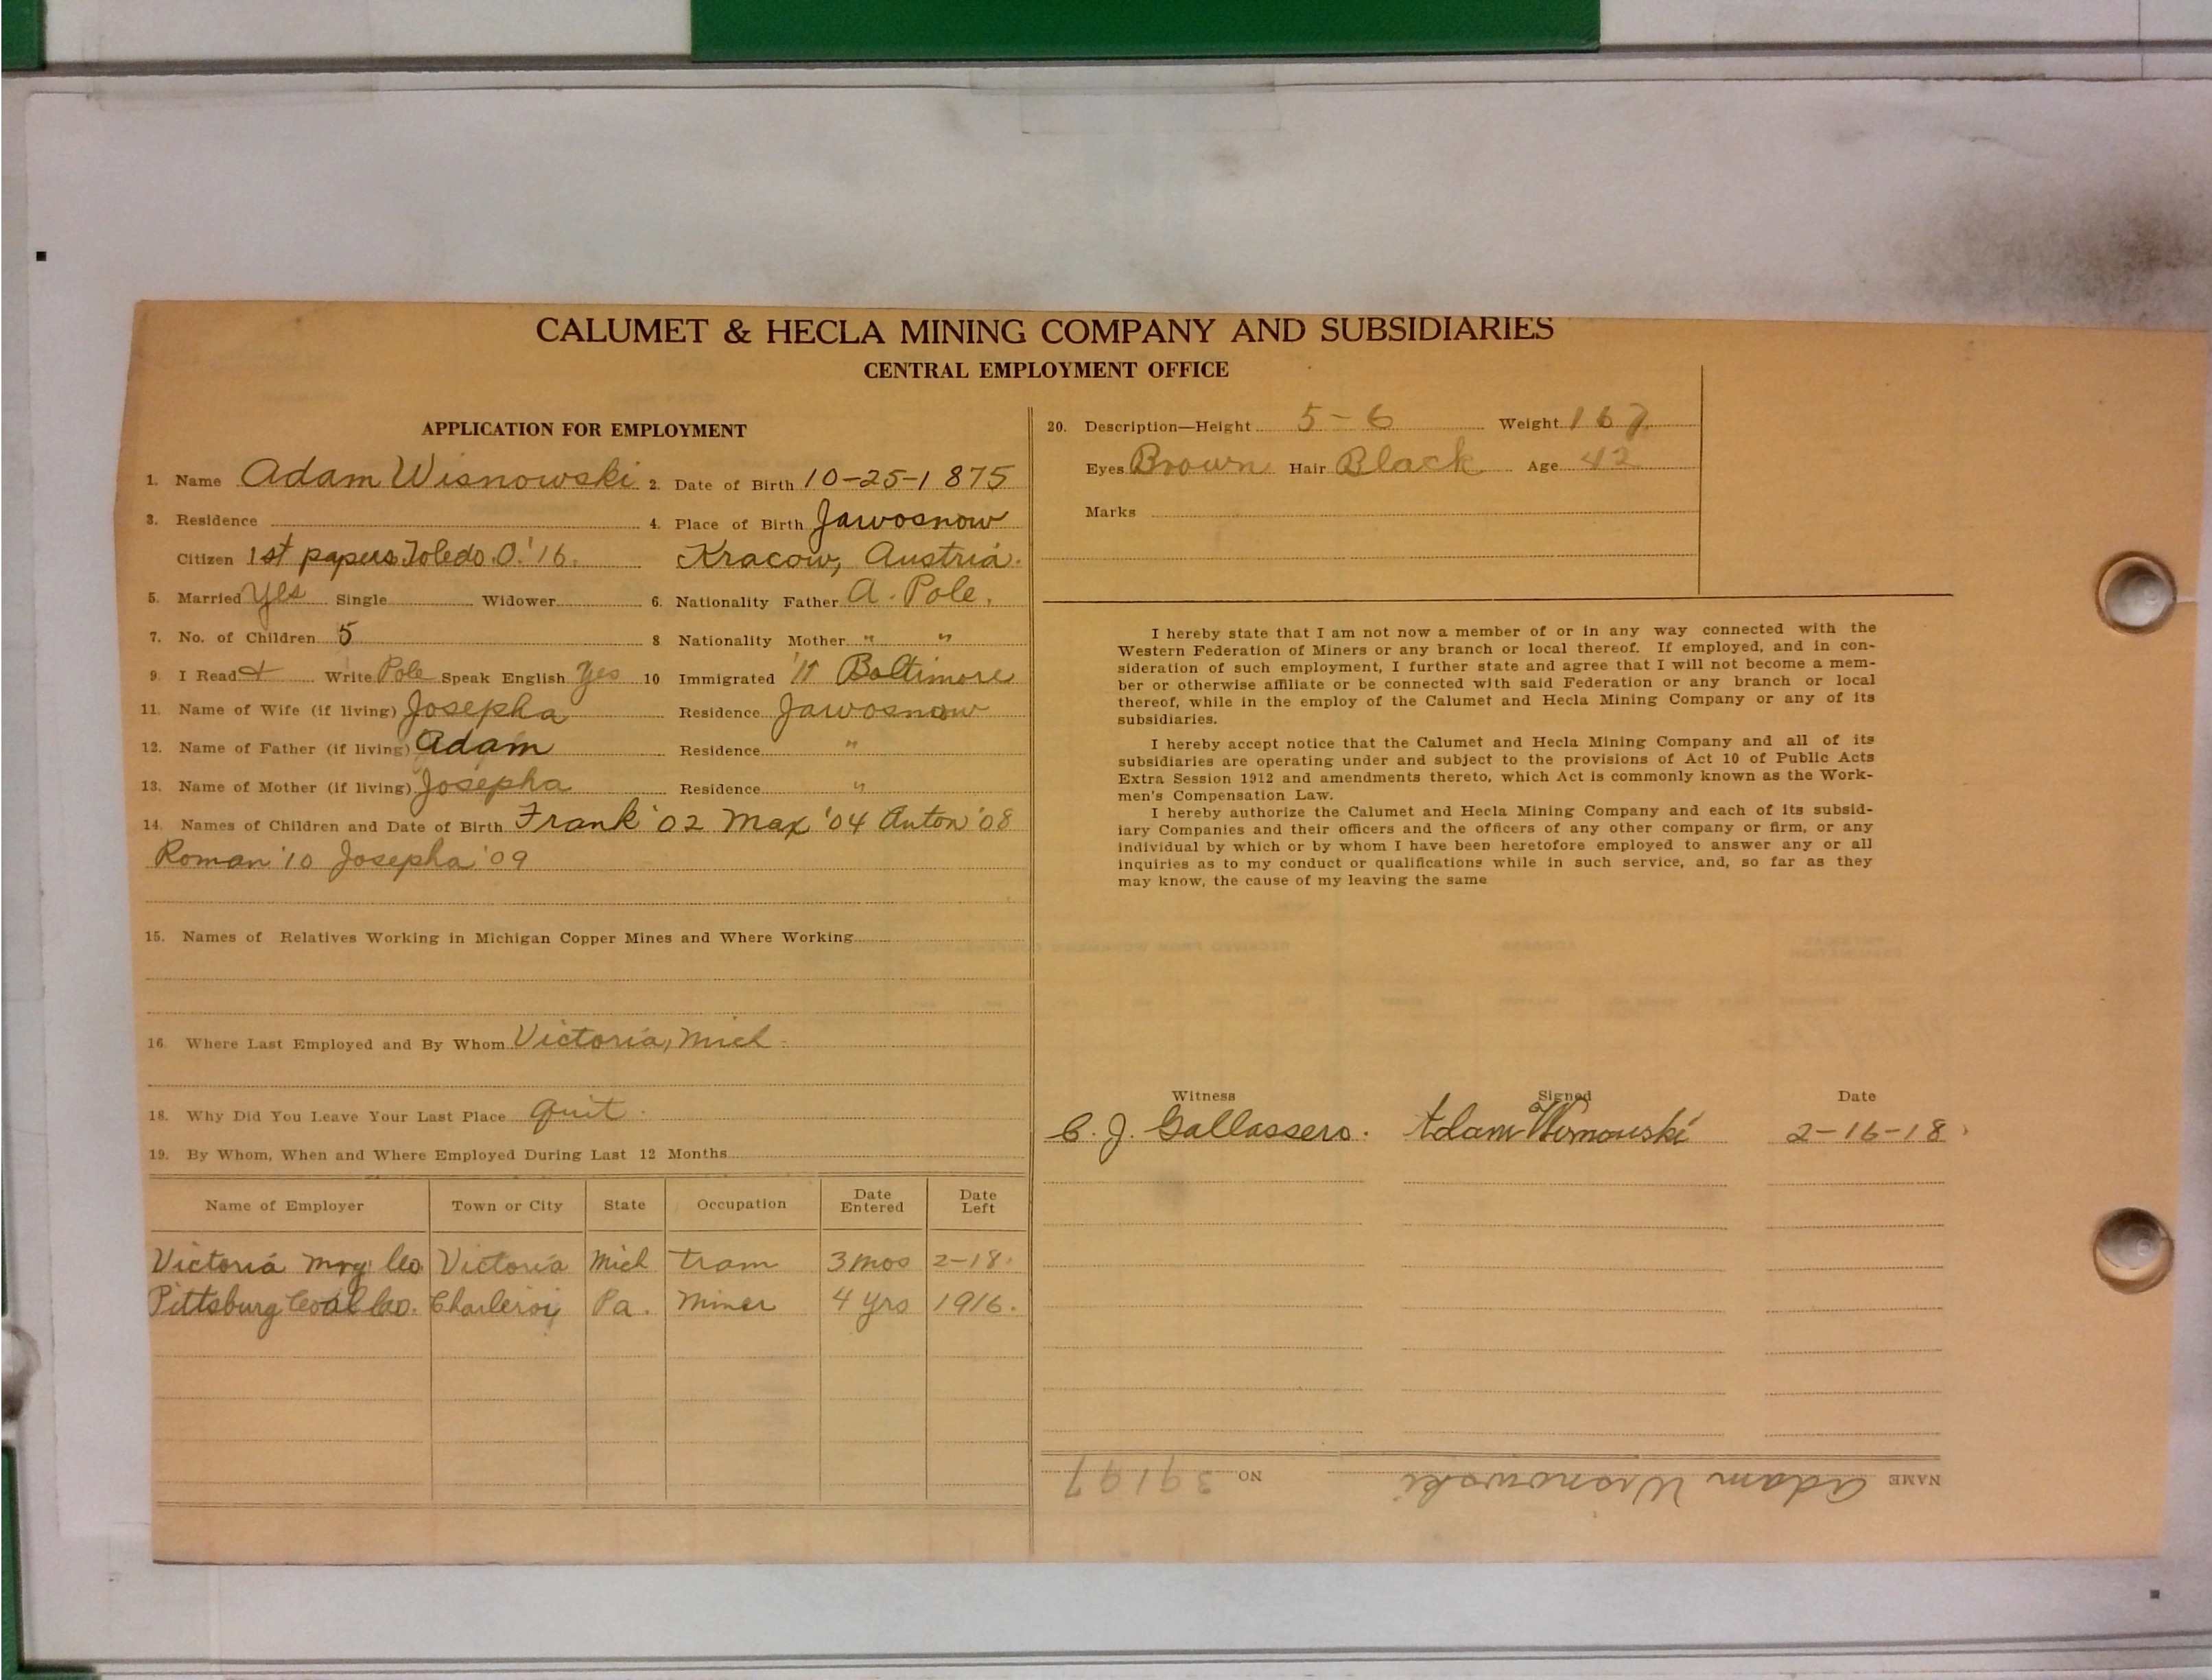 CALUMET & HECLA MINING COMPANY AND SUBSIDIARIES
CENTRAL EMPLOYMENT OFFICE
APPLICATION FOR EMPLOYMENT
1. Name Adam Wisnowski 2. Date of Birth 10-25-1875
3. Residence 4. Place of Birth Jawosnow
Citizen 1st papers Toledo O. '16. Kracow, Austria.
5. Married Yes Single Widower 6. Nationality Father A. Pole.
7. No. of Children 5 8 Nationality Mother " "
9. I Read & Write Pole Speak English Yes 10 Immigrated '11 Baltimore
11. Name of Wife (if living) Josepha Residence Jawosnow
12. Name of Father (if living) Adam Residence "
13. Name of Mother (if living) Josepha Residence "
14. Names of Children and Date of Birth Frank '02 Max '04 Anton '08
Roman '10 Josepha '09
15. Names of Relatives Working in Michigan Copper Mines and Where Working
16. Where Last Employed and By Whom Victoria, Mich.
18. Why Did You Leave Your Last Place Quit.
19. By Whom, When and Where Employed During Last 12 Months
Name of Employer Town or City State Occupation Date Entered Date Left
Victoria Mng Co Victoria Mich tram 3 mos 2-18.
Pittsburg Coal Co. Charleroi Pa. Miner 4 yrs 1916.
20. Description—Height 5-6 Weight 167
Eyes Brown Hair Black Age 42
Marks
I hereby state that I am not now a member of or in any way connected with the
Western Federation of Miners or any branch or local thereof. If employed, and in con-
sideration of such employment, I further state and agree that I will not become a mem-
ber or otherwise affiliate or be connected with said Federation or any branch or local
thereof, while in the employ of the Calumet and Hecla Mining Company or any of its
subsidiaries.
I hereby accept notice that the Calumet and Hecla Mining Company and all of its
subsidiaries are operating under and subject to the provisions of Act 10 of Public Acts
Extra Session 1912 and amendments thereto, which Act is commonly known as the Work-
men's Compensation Law.
I hereby authorize the Calumet and Hecla Mining Company and each of its subsid-
iary Companies and their officers and the officers of any other company or firm, or any
individual by which or by whom I have been heretofore employed to answer any or all
inquiries as to my conduct or qualifications while in such service, and, so far as they
may know, the cause of my leaving the same
Witness Signed Date
C. J. Gallassero. Adam Wisnowski 2-16-18
NAME Adam Wisnowski NO 39197